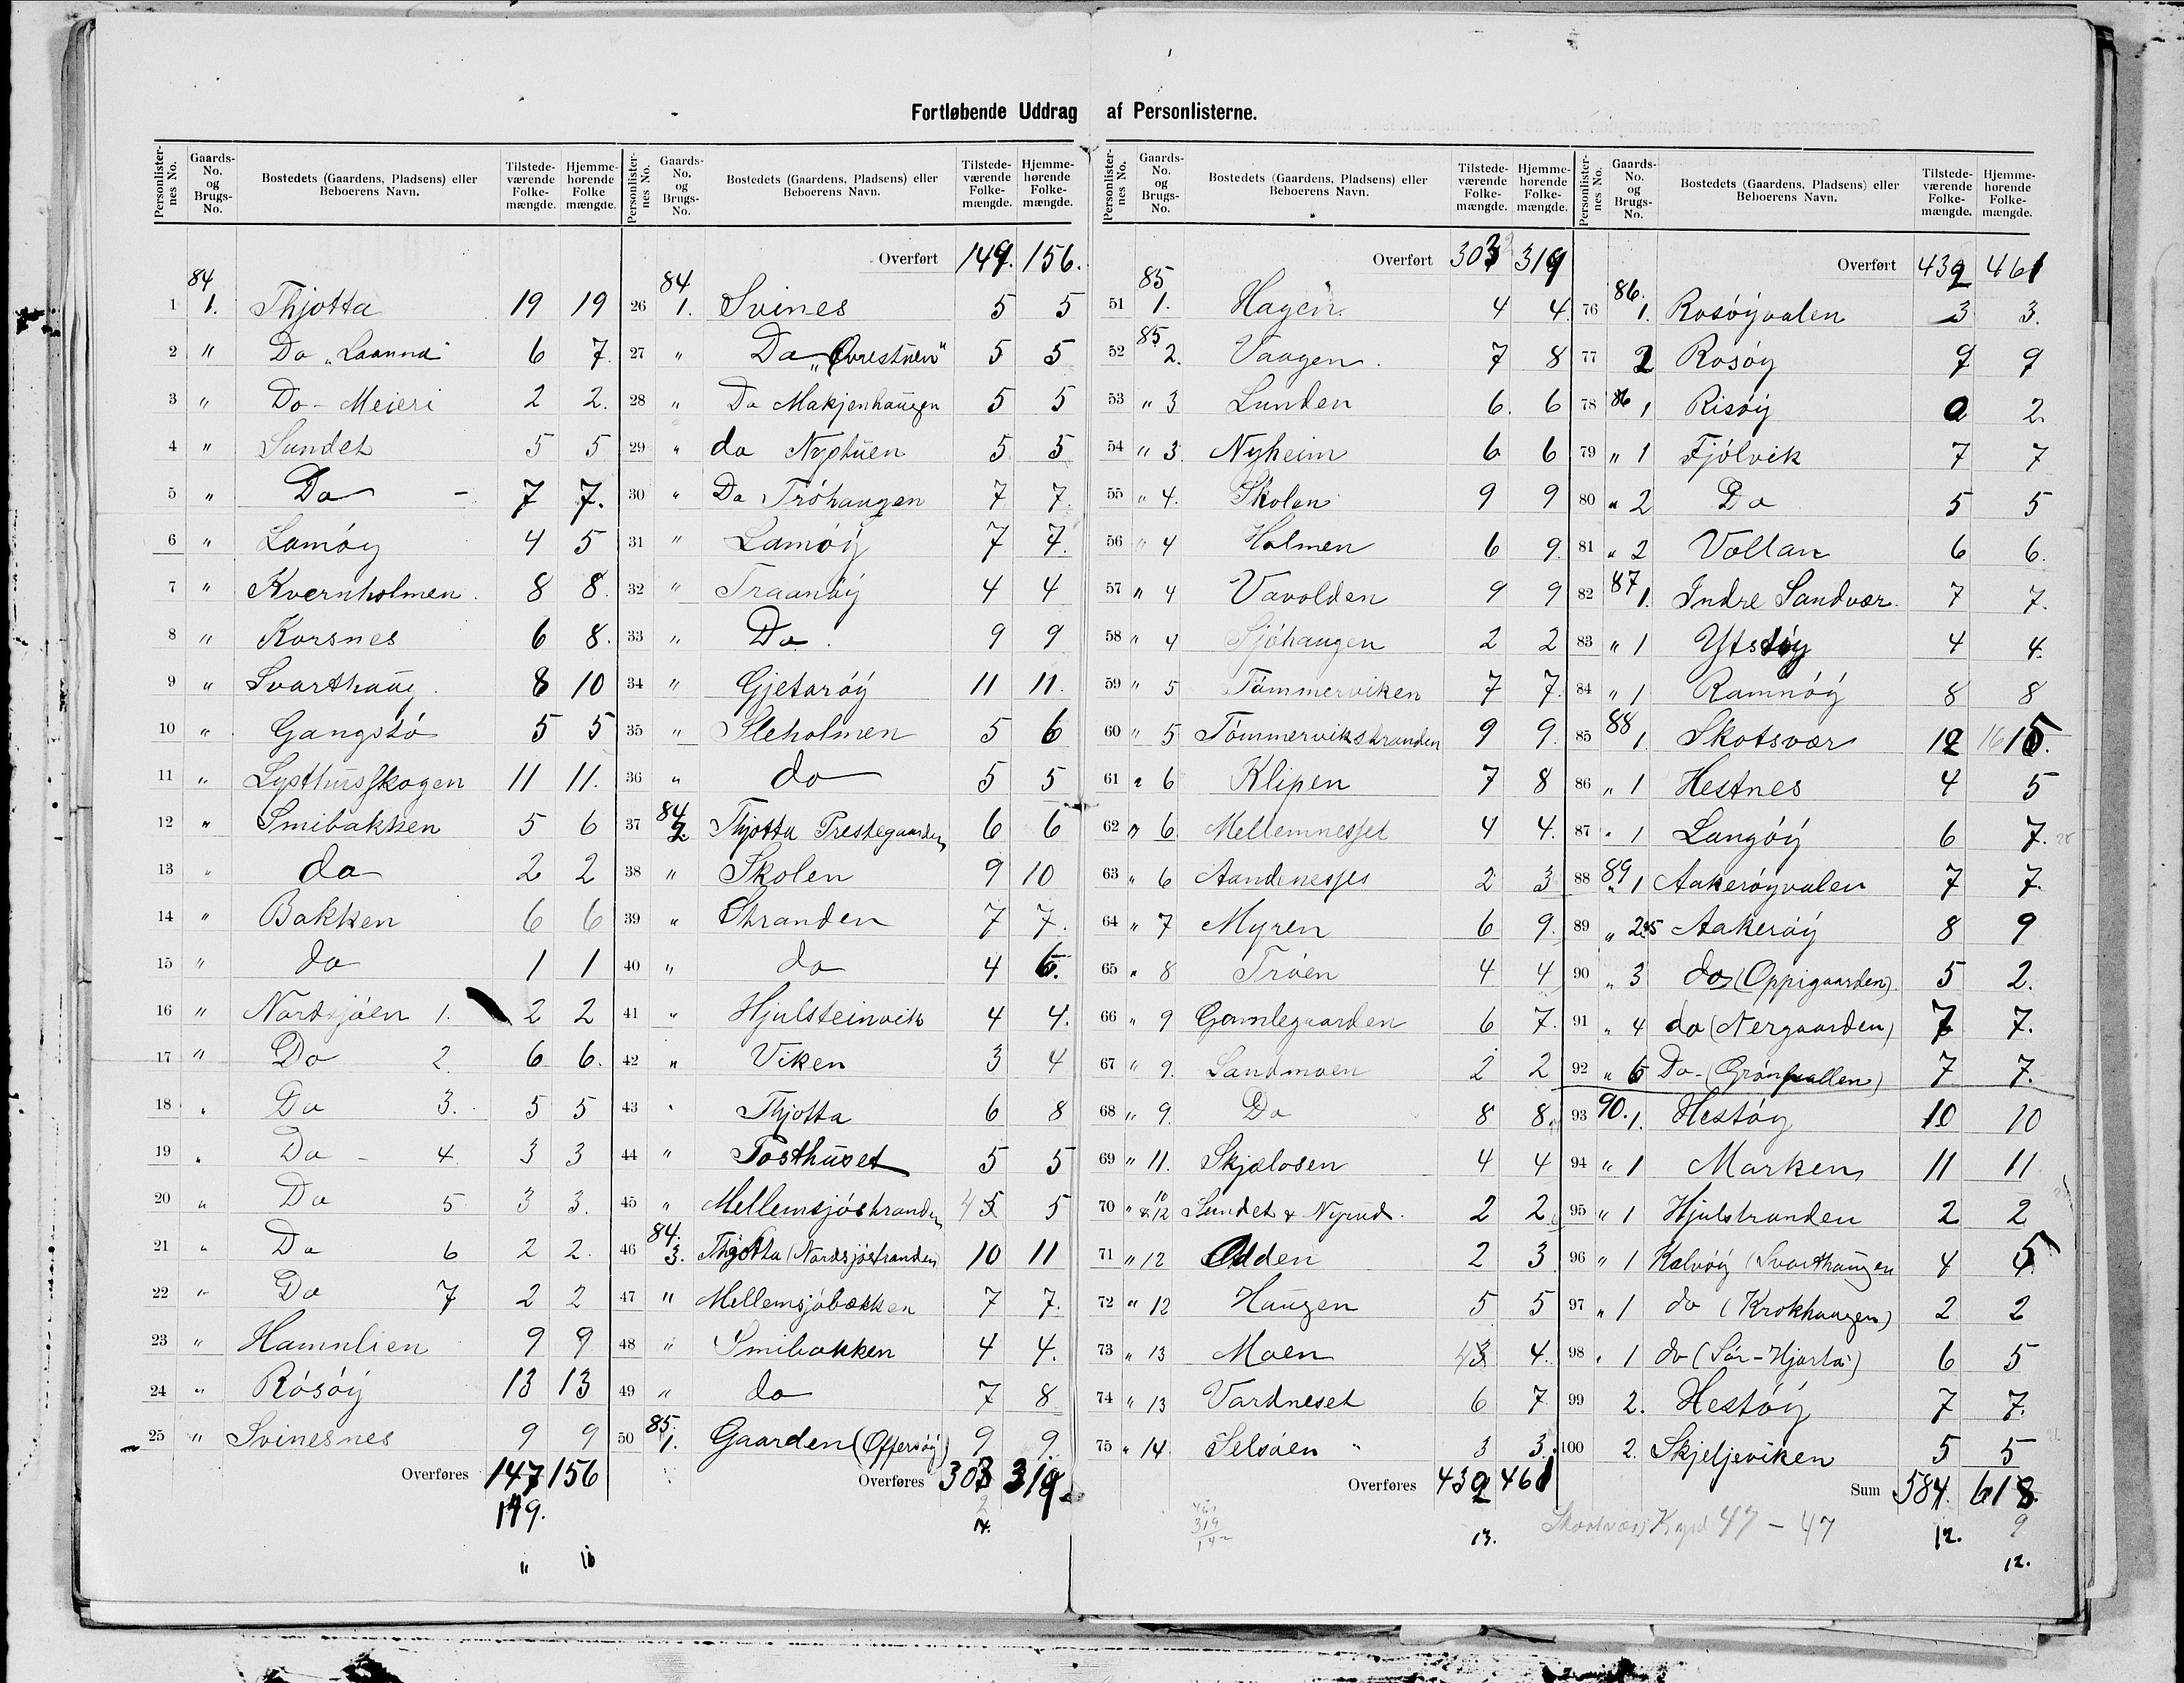 Fortløbende Uddrag af Personlisterne.
Personlisternes No. Gaards-No. og Brugs-No. Bostedets (Gaardens, Pladsens) eller Beboerens Navn. Tilstedeværende Folkemængde. Hjemmehørende Folkemængde.
84
1 1. Thjotta 19 19
2 " Do 6 7
3 " Do - Meieri 2 2.
4 " Sundet 5 5
5 " Do - 7 7.
6 " Lamöy 4 5
7 " Kvernholmen 8 8.
8 " Korsnes 6 8.
9 " Svarthaug 8 10
10 " Gangstö 5 5
11 " Lysthusskogen 11 11.
12 " Smibakken 5 6
13 " do 2 2
14 " Bakken 6 6
15 " do 1 1
16 " Nordsjöen 1. 2 2
17 " Do 2. 6 6.
18 " Do 3. 5 5
19 " Do - 4. 3 3
20 " Do 5 3 3.
21 " Do 6 2 2.
22 " Do 7 2 2
23 " Hamnlien 9 9
24 " Rösöy 13 13
25 " Svinesnes 9 9
Overføres 147 156
149.
" 10
Overført 149. 156.
84
26 1. Svines 5 5
27 " Do 5 5
28 " Do Makjenhaugen 5 5
29 " do Nyptuen 5 5
30 " Do Tröhaugen 7 7.
31 " Lamöy 7 7.
32 " Traanöy 4 4
33 " Do. 9 9
34 " Gjetaröy 11 11.
35 " Sleholmen 5 6
36 " do 5 5
84
37 2. Thjotta Prestegaarden 6 6
38 " Skolen 9 10
39 " Stranden 7 7.
40 " do 4
41 " Hjulsteinvik 4 4.
42 " Viken 3 4
43 " Thjotta 6 8
44 " Posthuset 5 5
45 " Mellemsjöstranden 4 5 5
84.
46 3. Thjotta (Nordsjöstranden) 10 11
47 " Mellemsjöbakken 7 7.
48 " Smibakken 4 4.
49 " do 7 8
85.
50 1. Gaarden (Offersöy) 9 9.
Overføres 303 319
2
14.
Overført 303 319
85
51 1. Hagen. 4 4.
85
52 2. Vaagen. 7 8
53 " 3 Lunden 6. 6
54 " 3. Nyheim 6 6
55 " 4. Skolen 9 9
56 " 4 Holmen 6 9.
57 " 4 Vavolden 9 9
58 " 4 Sjöhaugen 2 2
59 " 5 Tömmerviken 7 7.
60 " 5 Tömmervikstranden 9 9.
61 " 6 Klipen 7 8
62 " 6. Mellemnesset 4 4.
63 " 6 Aandenesses 2 3
64 " 7 Myren 6 9.
65 " 8 Tröen 4 4
66 " 9 Gamlegaarden 6 7.
67 " 9. Sandmoen 2 2
68 " 9. Do 8 8.
69 " 11. Skjælosen 4 4
70 " 10 & 12 Sundet & Nyrud. 2 2
71 " 12 Odden 2 3
72 " 12 Haugen 5 5
73 " 13 Moen 4 3 4.
74 " 13 Vardneset 6 7
75 " 14. Selsöen " 3 3.
Overføres 432 461
319
13.
Overført 432 461
86.
76 1. Rosöyvalen 3 3.
77 2 Rosöy 9 9
78 86 1 Risöy 0 2.
79 " 1 Fjölvik 7 7
80 " 2 Do 5 5
81 " 2 Vollan 6 6.
87
82 1. Indre Sandvær. 7 7.
83 " 1 Ytstöy 4 4.
84 " 1 Ramnöy 8 8
88
85 1. Skotsvær 12 16
86 " 1 Hestnes 4 5
87 " 1 Langöy 6 7.
89
88 " 1 Aakeröyvalen 7 7.
89 " 2 & 5 Aakeröy 8 9
90 " 3 do (Oppigaarden). 5 2.
91 " 4 do (Nergaarden) 7 7.
92 " 6 Do - 7 7.
93 90. 1. Hestöy 10 10
94 " 1 Marken 11 11
95 " 1 Hjulstranden 2 2
96 " 1 Kalvöy (Svarthaugen 4 5
97 " 1 do (Krokhaugen) 2 2
98 " 1 do (Sör-Hjarta) 6 5
99 2. Hestöy 7 7.
100 2. Skjeljeviken 5 5
Sum 584. 618.
47 - 47
12. 9
12.